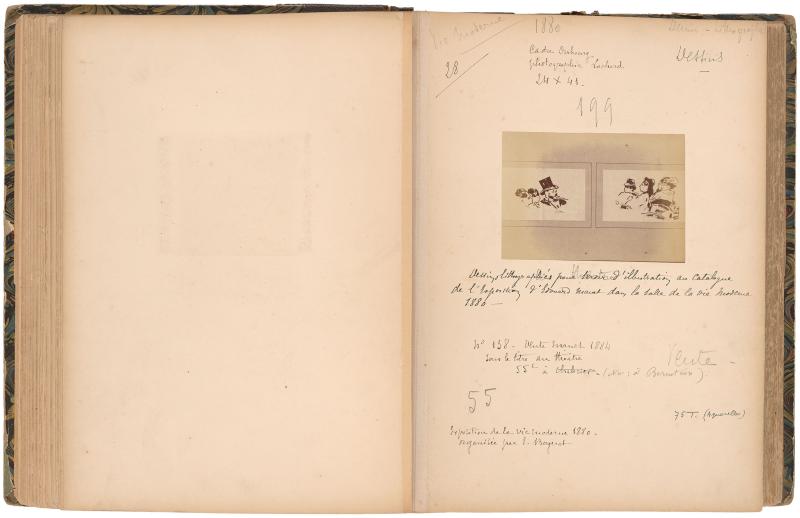 Vie Moderne
28
1880
Cadre Dubourg
photographie Lochard
24 x 41.
Dessins
199
Dessins lithographiés pour d'illustration au Catalogue
de l'Exposition d'Edouard Manet dans la salle de la vie Moderne
1880 —
N° 138 - Vente Manet 1884
sous le titre au théâtre
55 f à (Non: à Bernstein)
Vente -
55
75 T. (Aquarelles)
Exposition de la vie moderne 1880 -
organisée par E. Bergerat